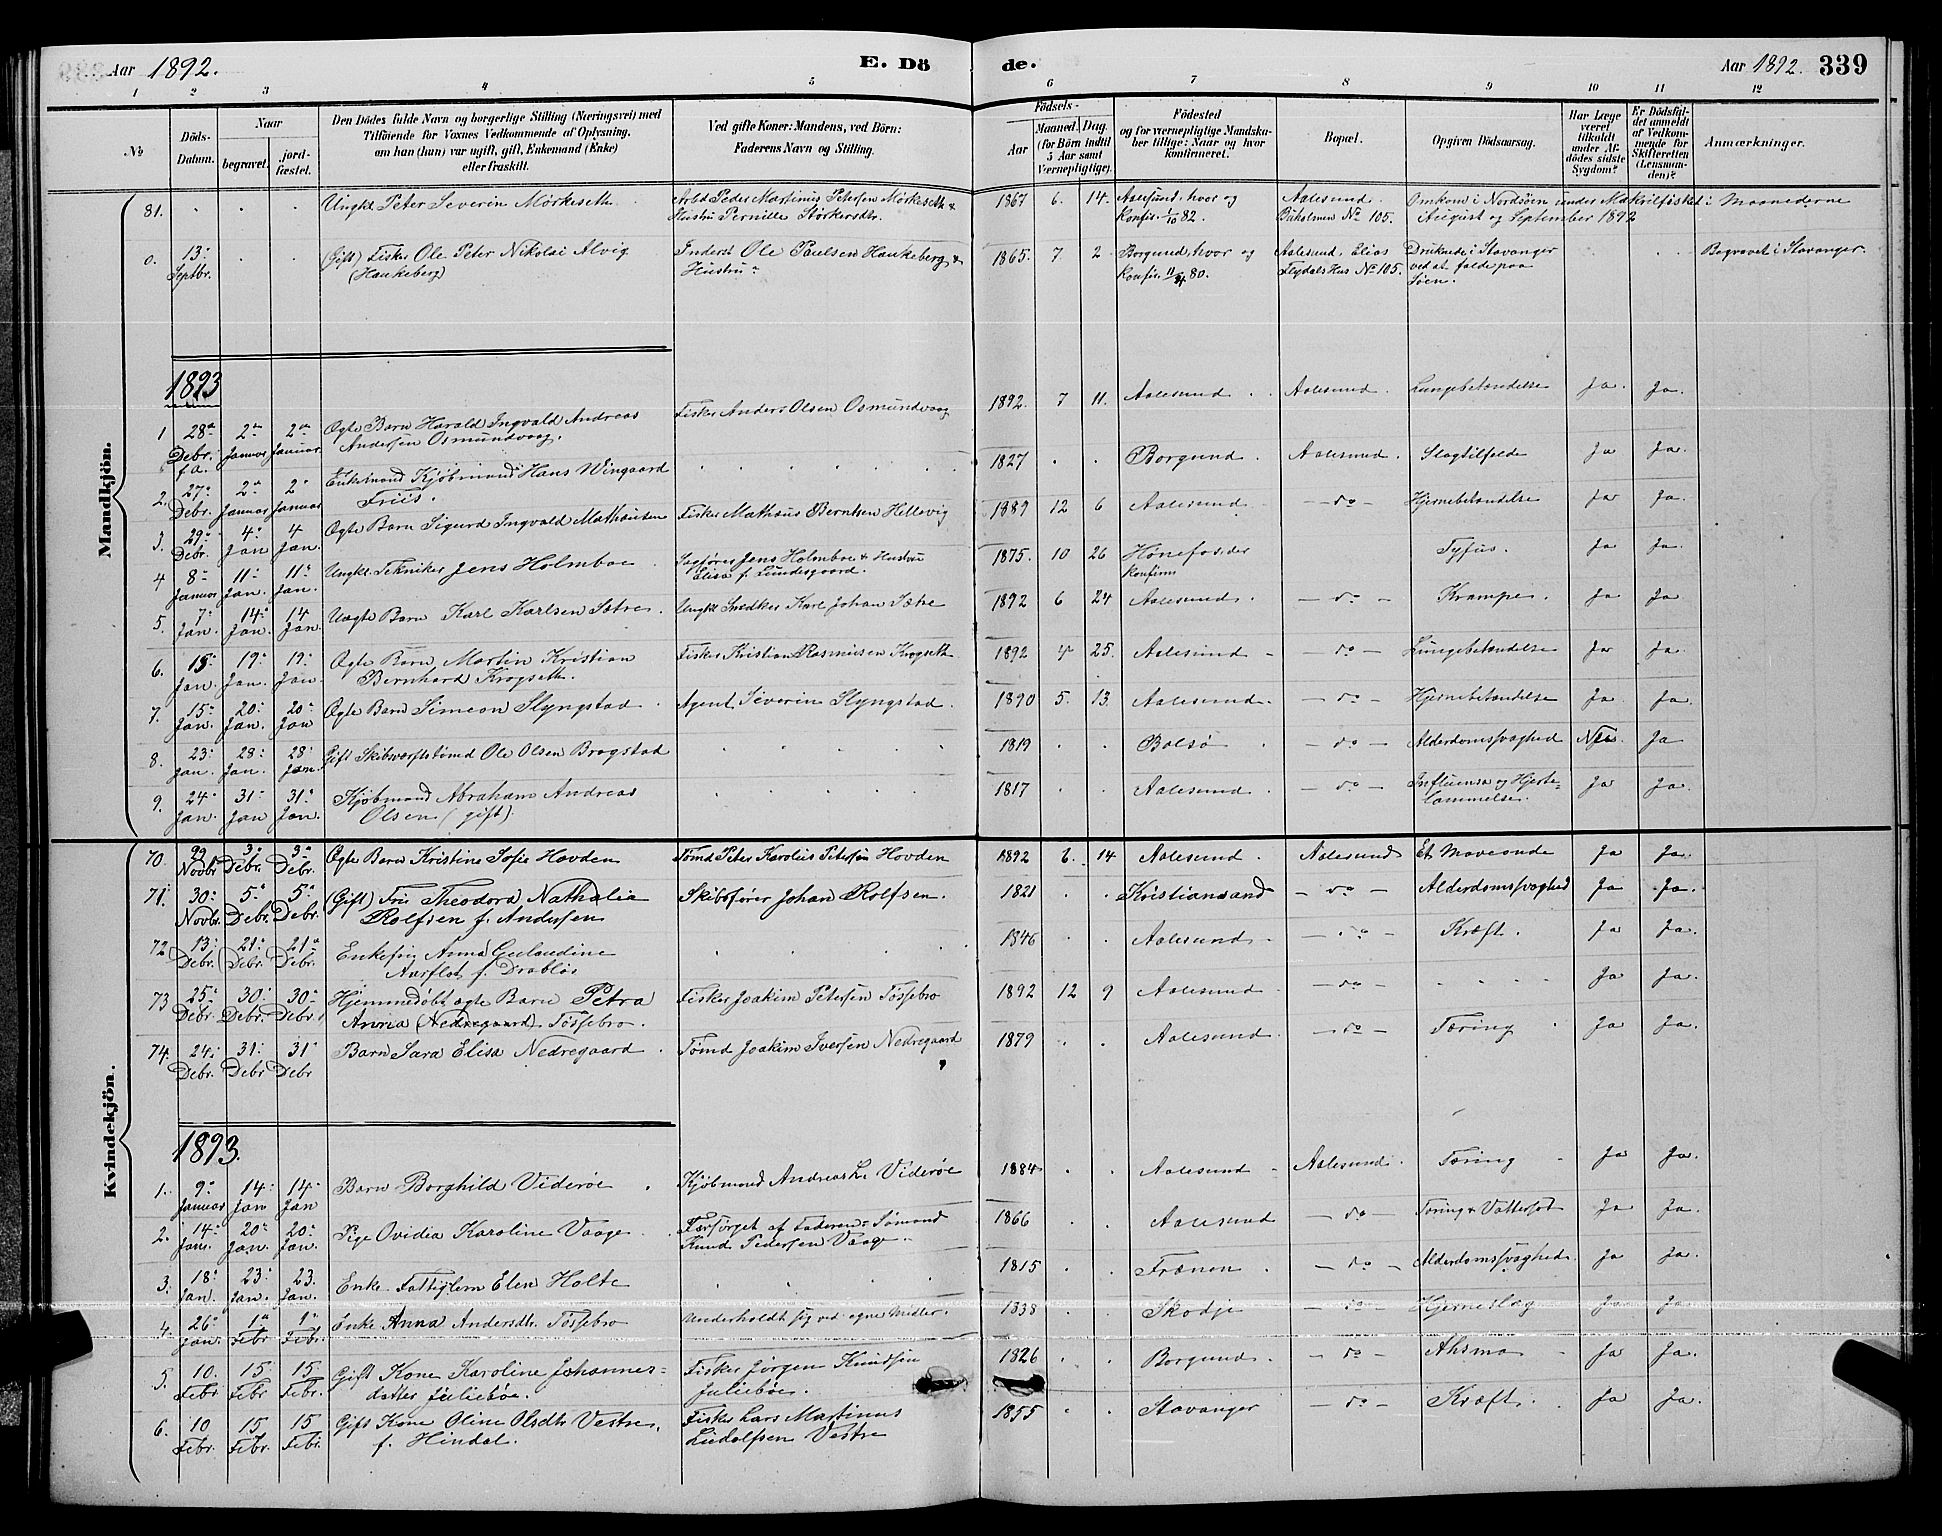 Aar 1892.
E. Dö
de.
Aar 1892. 339
1 2 3 4 5 6 7 8 9 10 11 12
No
Döds-
Datum.
Naar
begravet.
jord-
fæstet.
Den Dödes fulde Navn og borgerlige Stilling (Næringsvei) med
Tilföiende for Voxnes Vedkommende af Oplysning,
om han (hun) var ugift, gift, Enkemand (Enke)
eller fraskilt.
Ved gifte Koner: Mandens, ved Börn:
Faderens Navn og Stilling.
Födsels-
Aar
Maaned. Dag.
(for Börn indtil
5 Aar samt
Værnepligtige).
Födested
og for værnepligtige Mandska-
ber tillige: Naar og hvor
konfirmeret.
Bopæl.
Opgiven Dödsaarsag.
Har Læge
været
tilkaldt
under Af-
dödes sidste
Sygdom?
Er Dödsfal-
det anmeldt
af Vedkom-
mende for
Skifteretten
(Lensman-
den)?
Anmærkninger.
Mandkjön.
81. Ungkl Peter Severin Mörkeseth Arbd Peder Martinus Petersen Mörkeseth & 1867 6. 14. Aalesund, hvor og Aalesund. Omkom i Nordsöen under Makrilfisket i Maanederne
Hustru Pernille Störkersdtr. Konfir. 1/10 82. No 105. August og September 1892
0. 13 (Gift) Fisker Ole Peter Nikolai Alvig Inderst Ole Paulsen Haukeberg & 1865. 7 2 Borgund, hvor og Aalesund, Elias Druknede i Stavanger Begravet i Stavanger.
Septbr. (Haukeberg) Hustru Konfir. 80. Flydals Hus No 105. ved at falde paa
Söen.
1893
1 28 2 2 Ægte Barn Harald Ingvald Andreas Fisker Anders Olsen Osmundvaag 1892. 7 11. Aalesund Aalesund. Lungebetændelse Ja. Ja.
Debr. Januar Januar. Andersen Osmundvaag.
f.a.
2. 27 2 2 Enkemand Kjöbmand Hans Wingaard 1827 Borgund Aalesund. Slagtilfælde Ja Ja.
Debr. Januar Januar Friis.
3. 29 4 4 Ægte Barn Sigurd Ingvald Mathausen Fisker Mathæus Berntsen Hellevig 1889 12 6 Aalesund do Hjernebetændelse Ja Ja.
Debr. Jan Jan.
4 8 11 11 Ungkl Tekniker Jens Holmboe Sagförer Jens Holmboe & Hustru 1875. 10 26 Hönefos, der Tyfus. Ja Ja.
Januar Jan. Jan. Elisa f. Lundesgaard. Konfirm
5. 7 14 14 Uægte Barn Karl Karlsen Sætre. Ungkl Snedker Karl Johan Sætre 1892 6 24 Aalesund. do Krampe. Ja Ja.
Jan. Jan. Jan.
6. 15 19 19 Ægte Barn Martin Kristian Fisker Kristian Rasmusen Krogseth 1892 4 25. Aalesund do Lungebetændelse Ja Ja.
Jan. Jan. Jan. Bernhard Krogseth.
7. 15 20 20 Ægte Barn Simeon Slyngstad Agent Severin Slyngstad. 1890 5. 13. Aalesund. do Hjernebetændelse Ja Ja.
Jan. Jan. Jan
8. 23 28 28 Gift Skibsværftstömd Ole Olsen Bragstad 1819 Bolsö do Alderdomssvaghed Nei. Ja
Jan. Jan. Jan.
9. 24 31 31 Kjöbmand Abraham Andreas 1817 Aalesund. do Influensa og Hjerte- Ja Ja.
Jan. Jan Jan. Olsen (gift). lammelse.
Kvindekjön.
70. 29 3 3 Ægte Barn Kristine Sofie Hovden Tömd Peter Karolius Petersen Hovden 1892 6. 14 Aalesund. Aalesund Et Maveonde Ja Ja.
Novbr Debr. Debr.
71. 30 5 5 (Gift) Fru Theodora Nathalia Skibsförer Johan Rolfsen. 1821 Kristiansand do Alderdomssvaghed Ja Ja.
Novbr. Debr Debr. Rolfsen f. Andersen
72. 13 21 21 Enkefru Anna Gulaudine 1846 Aalesund do Kræft. Ja Ja.
Debr. Debr. Debr. Aarflot f. Drablös
73 25 30 30 Hjemmedöbt ægte Barn Petra Fisker Joakim Petersen Tössebro 1892 12 9 Aalesund do Ja Ja.
Debr. Debr. Debr. Anna (Nedregaard) Tössebro.
74. 24 31 31 Barn Sara Elisa Nedregaard Tömd Joakim Iversen Nedregaard 1879 Aalesund do Tæring Ja Ja.
Debr. Debr Debr
1893.
1. 9 14 14 Barn Borghild Videröe Kjöbmand Andreas L. Videröe 1884 Aalesund Aalesund. Tæring Ja Ja.
Januar Jan Jan
2. 14 20 20 Pige Ovidia Karoline Vaage Forsörget af Faderen Sömand 1866 Aalesund do Tæring & Vattersot Ja Ja.
Jan. Jan. Jan. Knud Pedersen Vaage.
3. 18 23 23. Enke Fattiglem Elen Holte 1815 Frænen do Alderdomssvaghed Ja Ja.
Jan. Jan. Jan.
4. 26 1 1 Enke Anna Andersdtr Tössebro Underholdt sig ved egne Midler. 1838 Skodje do Hjerneslag Ja Ja.
Jan. Febr Febr.
5. 10. 15 15 Gift Kone Karoline Johannes- Fisker Jörgen Knudsen 1826 Borgund. do Ahsma Ja Ja.
Febr. Febr Febr. datter Juliebøe. Juliebøe.
6. 10 15 15 Gift Kone Oline Olsdtr Vestre, Fisker Lars Martinus 1855 Stavanger do Kræft Ja Ja.
Febr. Febr. Febr. f. Hindal. Ludolfsen Vestre